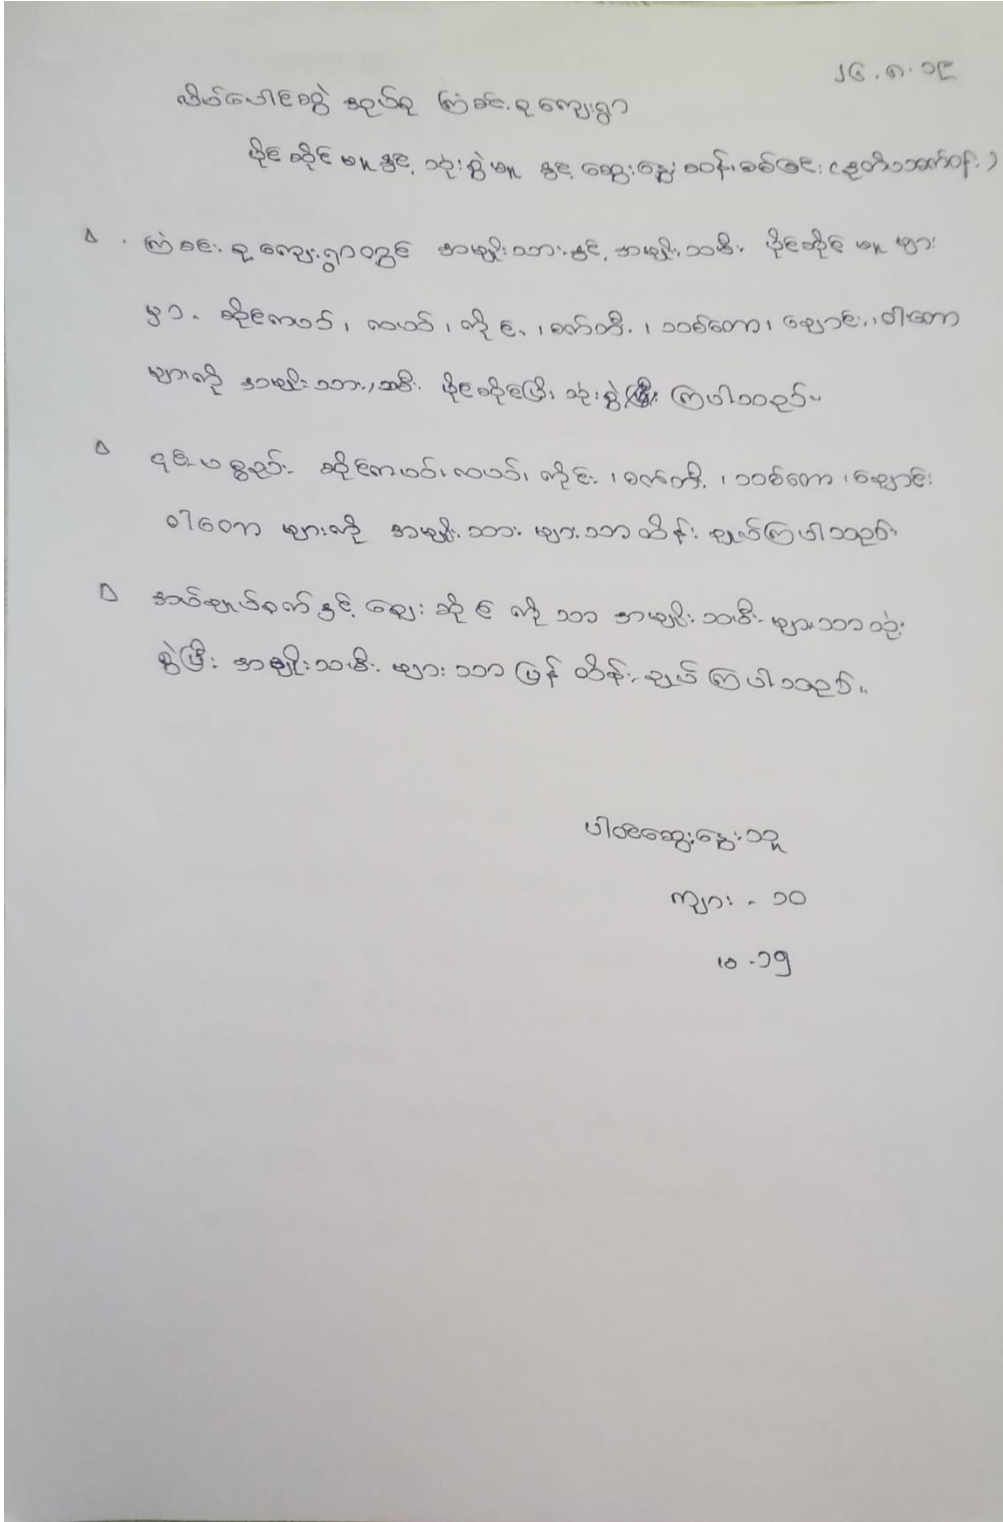 ၂၄.၈.၁၉
လိပ်ပေါင်စွဲ အုပ်စု ကြံခင်းစု ကျေးရွာ
ပိုင်ဆိုင်မှုနှင့် သုံးစွဲမှု နှင့် ဆွေးနွေး စဝန်းစစ်ခြင်း
ကြံခင်းစု ကျေးရွာတွင် အမျိုးသားနှင့် အမျိုးသမီး ပိုင်ဆိုင်မှုများ
မှာ - ဆိုင်ကယ်၊ လယ်၊ ကိုင်း၊ စက်ဘီး၊ သစ်တော၊ ချောင်း၊ ဝါးတော
များကို အမျိုးသား၊ သမီး ပိုင်ဆိုင်ပြီး သုံးစွဲ ကြပါသည်။
၎င်းပစ္စည်း ဆိုင်ကယ်၊ လယ်၊ ကိုင်း၊ စက်ဘီး၊ သစ်တော၊ ချောင်း
ဝါးတော များကို အမျိုးသား များသာ ထိန်းချုပ်ကြပါသည်။
အပ်ချုပ်စက်နှင့် ဈေးဆိုင် ကိုသာ အမျိုးသမီး များသာ သုံး
စွဲပြီး အမျိုးသမီး များသာ ပြန် ထိန်းချုပ် ကြပါသည်။
ပါဝင်ဆွေးနွေးသူ
ကျား - ၁၀
မ - ၁၅